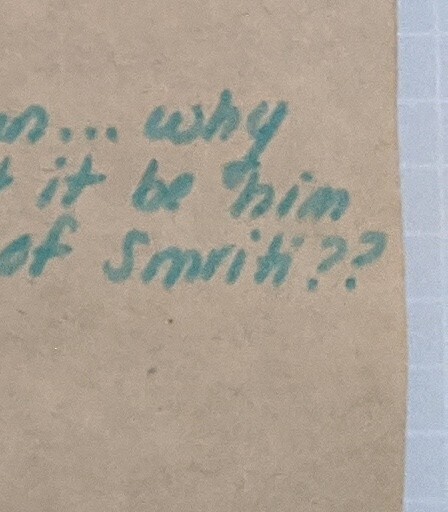 ... why
it be him
of Smriti??